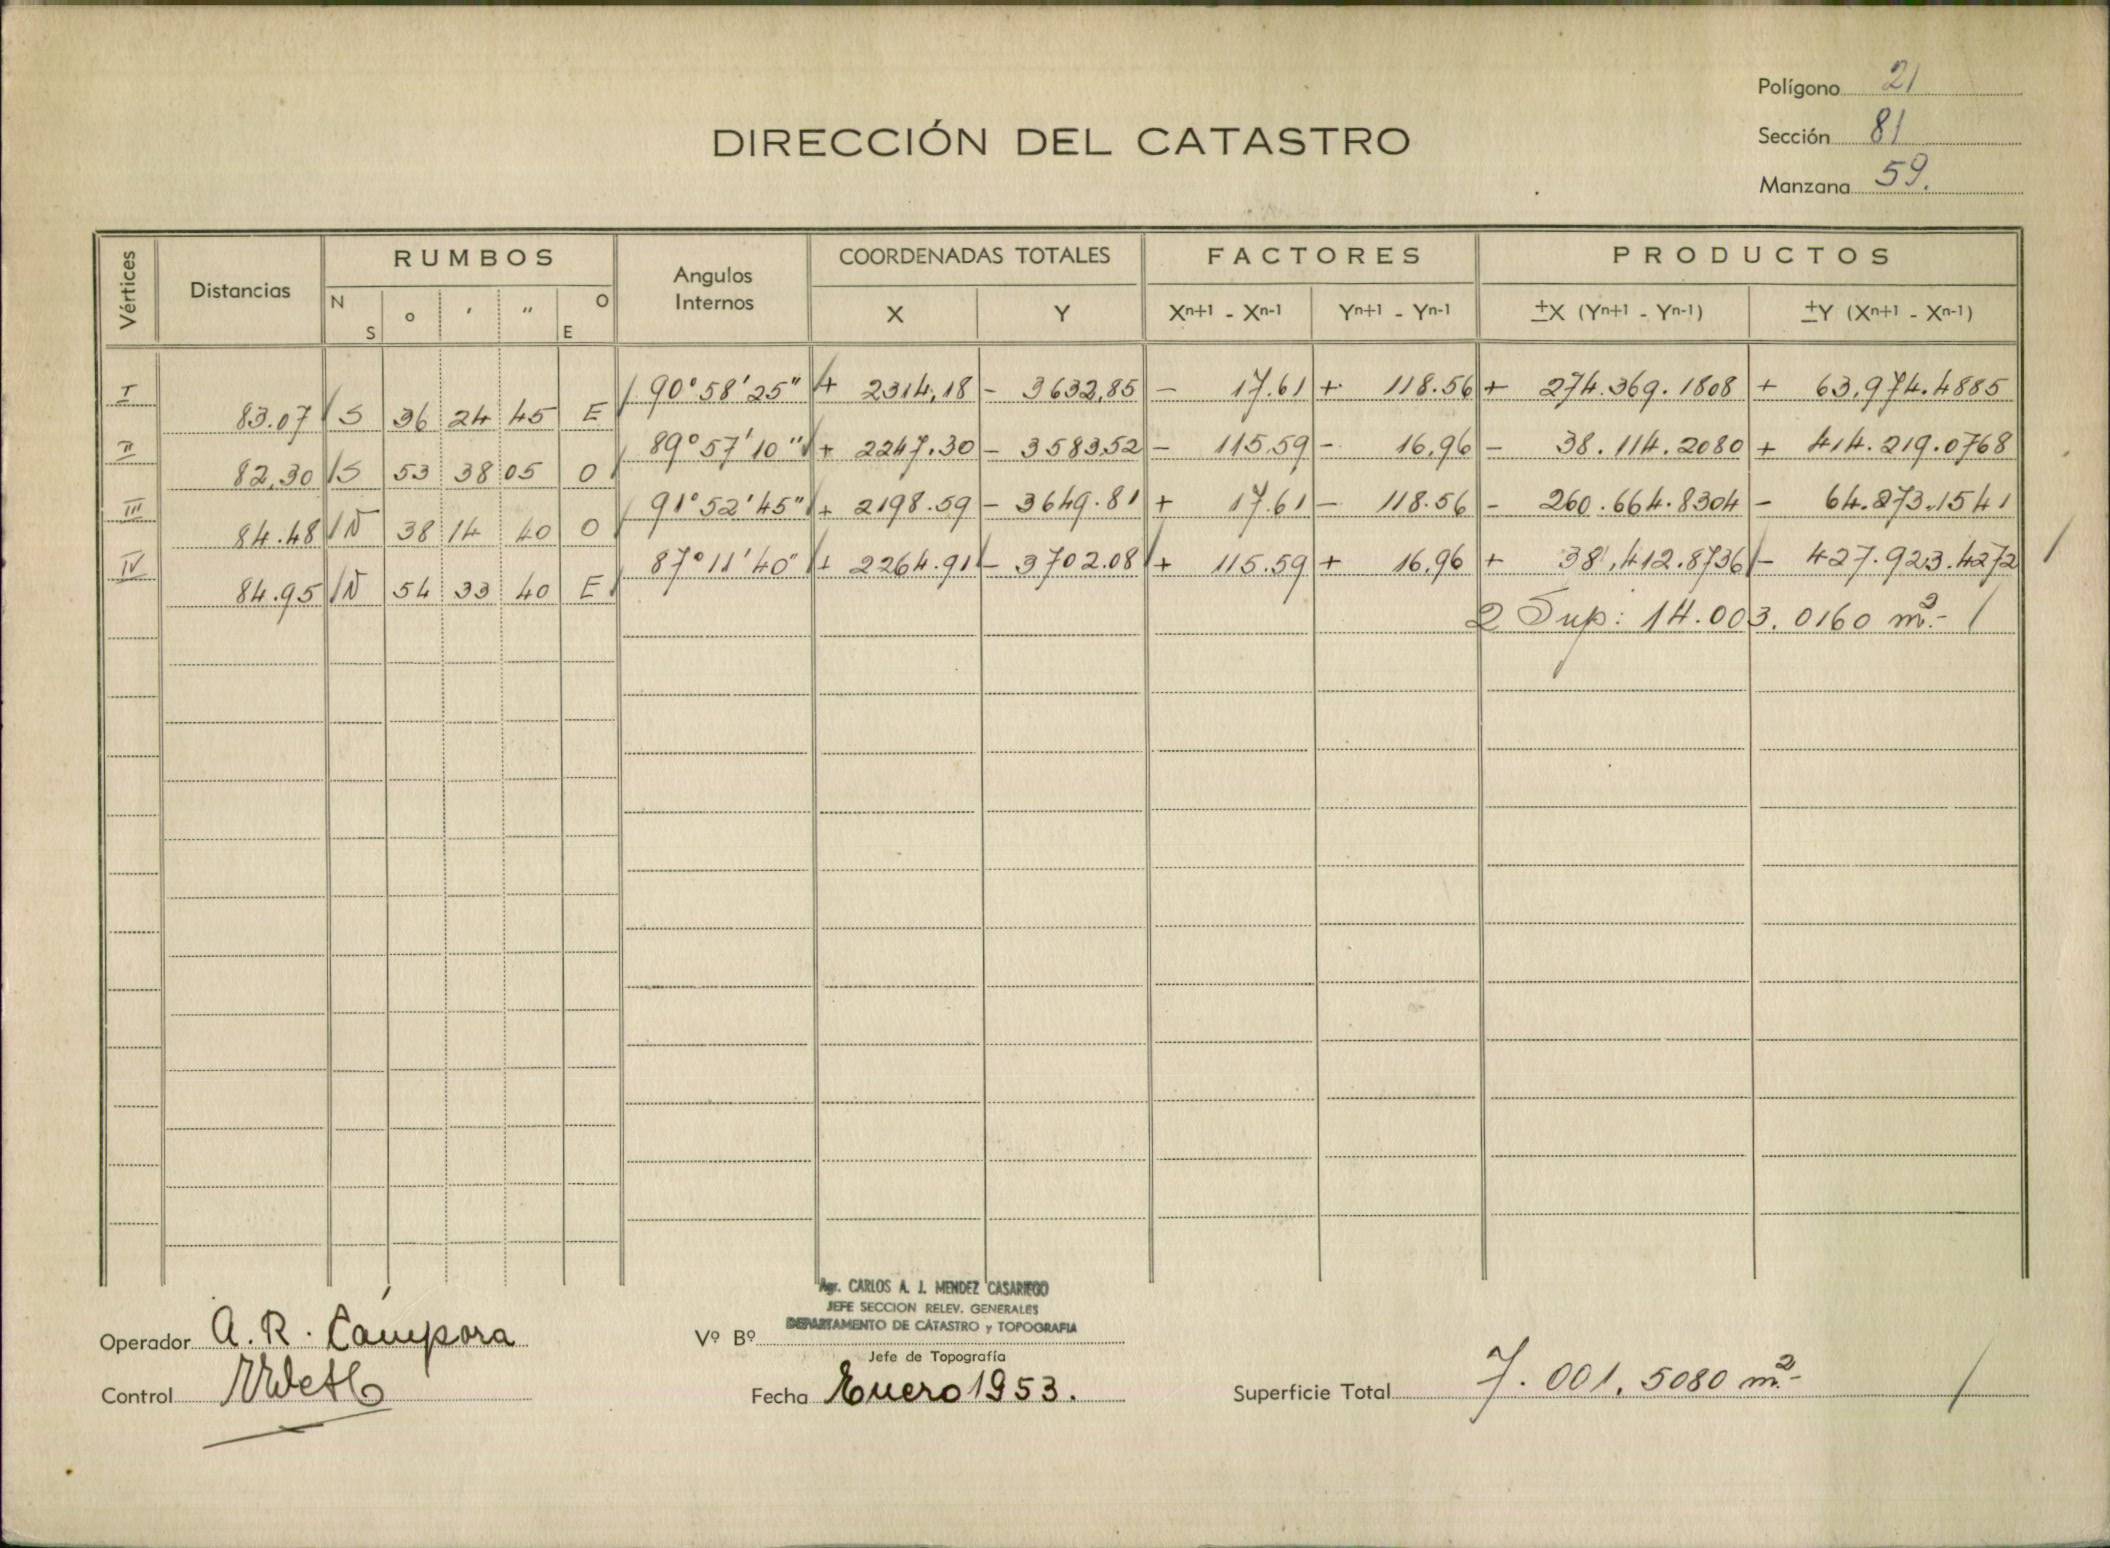 Polígono 21
DIRECCIÓN DEL CATASTRO
Sección 81
Manzana 59.
Vértices Distancias RUMBOS N S o ' " O E Angulos Internos COORDENADAS TOTALES X Y FACTORES Xn+1 - Xn-1 Yn+1 - Yn-1 PRODUCTOS ±X (Yn+1 - Yn-1) ±Y (Xn+1 - Xn-1)
I 90° 58' 25" + 2314,18 - 3632,85 - 17.61 + 118.56 + 274.369.1808 + 63.974.4885
83.07 S 36 24 45 E
II 89° 57' 10" + 2247.30 - 3583.52 - 115.59 - 16.96 - 38.114.2080 + 414.219.0768
82.30 S 53 38 05 O
III 91° 52' 45" + 2198.59 - 3649.81 + 17.61 - 118.56 - 260.664.8304 - 64.273.1541
84.48 N 38 14 40 O
IV 87° 11' 40" + 2264.91 - 3702.08 + 115.59 + 16.96 + 38.412.8736 - 427.923.4272
84.95 N 54 33 40 E
2 Sup: 14.003.0160 m².-
Agr. CARLOS A. J. MENDEZ CASARIEGO
JEFE SECCION RELEV. GENERALES
DEPARTAMENTO DE CATASTRO y TOPOGRAFIA
Operador A. R. Cámpora
Vº Bº
Jefe de Topografía
Control
Fecha Enero 1953.
Superficie Total 7.001.5080 m².-